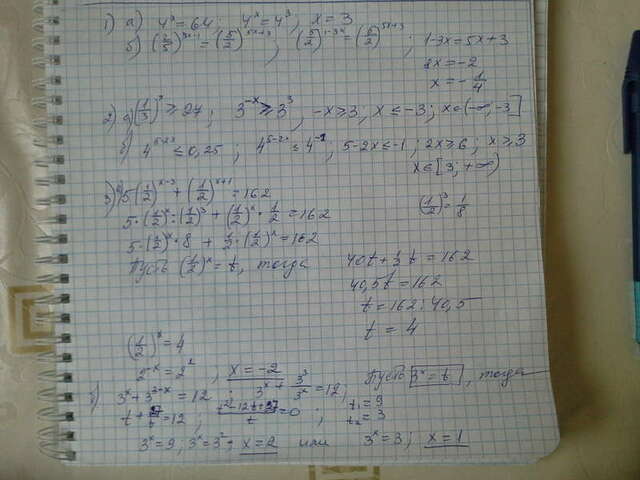 1) а) 4^x = 64; 4^x = 4^3, x = 3
б) (2/5)^{3x-1} = (5/2)^{5x+3}; (5/2)^{1-3x} = (5/2)^{5x+3}; 1-3x = 5x+3
8x = -2
x = -1/4
2) а) (1/3)^x ≥ 27; 3^{-x} ≥ 3^3; -x ≥ 3; x ≤ -3; x∈(-∞,-3]
б) 4^{5-2x} ≤ 0,25; 4^{5-2x} ≤ 4^{-1}; 5-2x ≤ -1; 2x ≥ 6; x ≥ 3
x∈[3; +∞)
3) а) 5(1/2)^{x-3} + (1/2)^{x+1} = 162
5·(1/2)^x : (1/2)^3 + (1/2)^x · 1/2 = 162
(1/2)^3 = 1/8
5·(1/2)^x · 8 + 1/2·(1/2)^x = 162
Пусть (1/2)^x = t, тогда
40t + 1/2 t = 162
40,5t = 162
t = 162 : 40,5
t = 4
(1/2)^x = 4
2^{-x} = 2^2, x = -2
б) 3^x + 3^{3-x} = 12, 3^x + 3^3/3^x = 12, Пусть 3^x = t, тогда
t + 27/t = 12, (t^2-12t+27)/t = 0; t₁ = 9
t₂ = 3
3^x = 9; 3^x = 3^2; x = 2 или 3^x = 3; x = 1